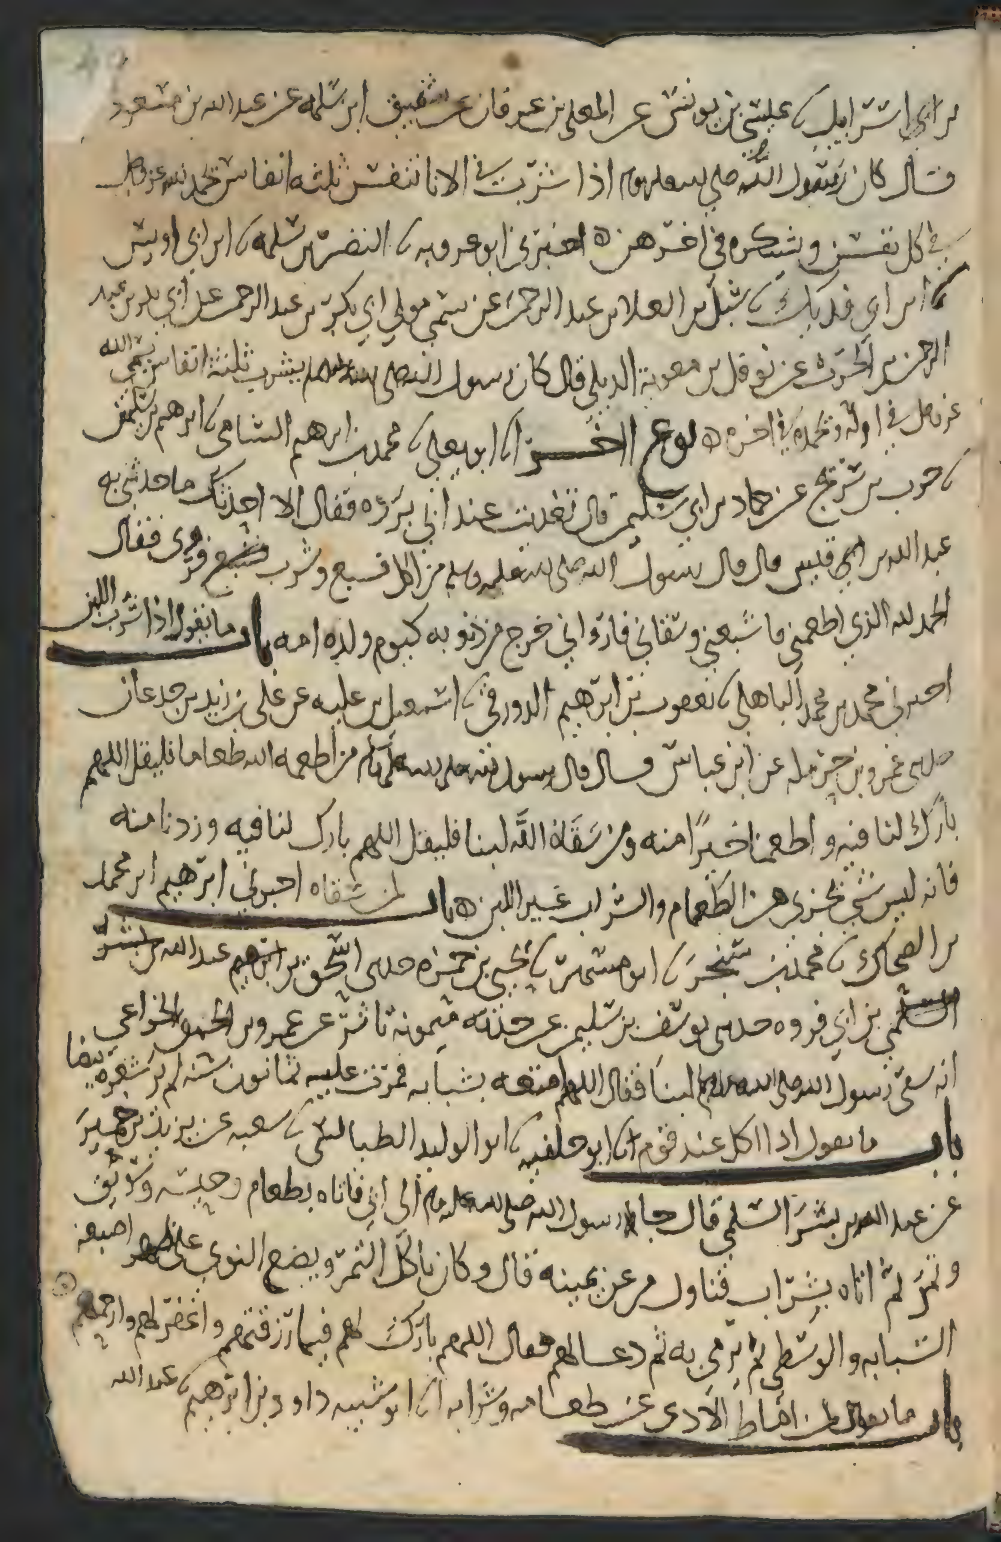 بن ابي اسرايل ثنا عيسى بن يونس عن المعلى بن عرفان عن شقيق ابن سلمه عن عبد الله بن مسعود
قال كان رسول الله صلى الله عليه وسلم اذا شرب في الانا تنفس ثلثه انفاس يحمد الله عز وجل
في كل نفس ويشكره في اخرهن ه اخبرني ابو عروبه ثنا النضر بن سلمه ثنا ابن ابي اويس
ثنا ابن ابي فديك ثنا شبل بن العلا بن عبد الرحمن عن سمي مولى ابي بكر بن عبد الرحمن عن ابي بكر بن عبد
الرحمن بن الحرث عن نوفل بن معوية الديلي قال كان رسول الله صلى الله عليه وسلم يشرب ثلثة انفاس يسمي الله
عز وجل في اوله ويحمده في اخره ه نوع اخر انا ابو يعلى ثنا محمد بن ابرهيم الشامي ثنا ابرهيم بن سليمن
ثنا حرب بن سريج عن حماد بن ابي سليمن قال تغديت عند ابي برده فقال الا احدثك ما حدثني به
عبد الله بن قيس قال قال رسول الله صلى الله عليه وسلم من اكل فشبع وشرب فروى فقال
الحمد لله الذي اطعمني فاشبعني وسقاني فارواني خرج من ذنوبه كيوم ولدته امه باب ما يقول اذا شرب اللبن
اخبرني محمد بن محمد الباهلي ثنا يعقوب بن ابرهيم الدورقي ثنا اسمعيل بن عليه عن علي بن زيد بن جدعان
حدثني عمرو بن حرمله عن ابن عباس قال قال رسول الله صلى الله عليه وسلم من اطعمه الله طعاما فليقل اللهم
بارك لنا فيه واطعمنا خيرا منه ومن سقاه الله لبنا فليقل اللهم بارك لنا فيه وزدنا منه
فانه ليس شي يجزى من الطعام والشراب غير اللبن ه باب لمن سقاه اخبرني ابرهيم بن محمد
بن الضحاك ثنا محمد بن سنجر ثنا ابو مسهر ثنا يحيى بن حمزه حدثني اسحق بن عبد الله
بن ابي فروه حدثني يوسف بن سليمن عن جدته ميمونه عن عمرو بن الحمق الخزاعي
انه سقى رسول الله صلى الله عليه وسلم لبنا فقال اللهم امتعه بشبابه فمرت عليه ثمانون سنه لم ير شعره بيضا
باب ما يقول اذا اكل عند قوم انا ابو خليفه ثنا ابو الوليد الطيالسي ثنا شعبه عن يزيد بن خمير
عن عبد الله بن بسر السلمي قال جا رسول الله صلى الله عليه وسلم الى ابي فاتاه بطعام وحيسه وسويق
وتمر ثم اتاه بشراب فناول من عن يمينه قال وكان ياكل التمر ويضع النوى على ظهر اصبعه
السبابه والوسطى ثم يرمي به ثم دعا لهم فقال اللهم بارك لهم فيما رزقتهم واغفر لهم وارحمهم
باب ما يقول لمن اماط الاذى عن طعامه وشرابه انا ابو شيبه داود بن ابرهيم ثنا عبد الله